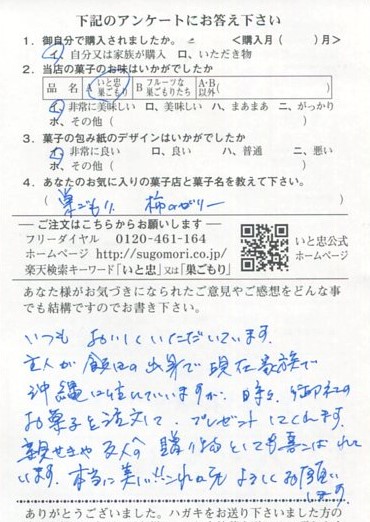 下記のアンケートにお答え下さい
1．御自分で購入されましたか。 ＜購入月（　　）月＞
イ、自分又は家族が購入　ロ、いただき物
2．当店の菓子のお味はいかがでしたか
品　名　A いと忠巣ごもり　B フルーツな巣ごもりたち　A・B以外（　　）
イ、非常に美味しい　ロ、美味しい　ハ、まあまあ　ニ、がっかり
ホ、その他（　　）
3．菓子の包み紙のデザインはいかがでしたか
イ、非常に良い　ロ、良い　ハ、普通　ニ、悪い
ホ、その他（　　）
4．あなたのお気に入りの菓子店と菓子名を教えて下さい。
（　巣ごもり　柿の　）
―ご注文はこちらからお願いします―
フリーダイヤル　0120-461-164
ホームページ　http://sugomori.co.jp/
楽天検索キーワード「いと忠」又は「巣ごもり」
いと忠公式
ホームページ
あなた様がお気づきになられたご意見やご感想をどんな事
でも結構ですのでお書き下さい。
いつも おいしくいただいています。
主人が飯田の出身で現在家族で
沖縄に住んでいますが、時々、御社の
お菓子を注文して、プレゼントしてくれます。
親せきや友人の贈り物としても喜こばれて
います。本当に美しい!!これからも よろしくお願い
します。
ありがとうございました。ハガキをお送り下さいました方の